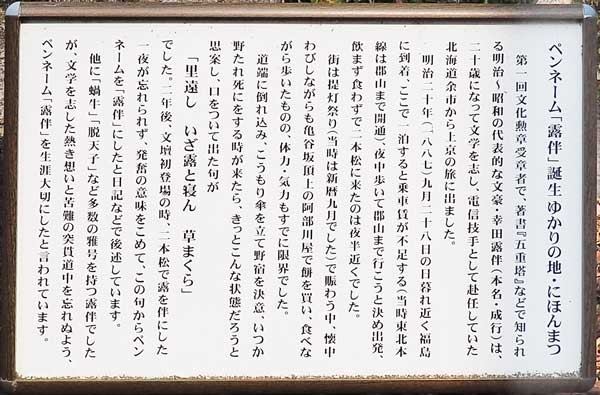 ペンネーム「露伴」誕生ゆかりの地・にほんまつ
第一回文化勲章受章者で、著書『五重塔』などで知られ
る明治～昭和の代表的な文豪・幸田露伴（本名・成行）は、
二十歳になって文学を志し、電信技手として赴任していた
北海道余市から上京の旅に出ました。
明治二十年（一八八七）九月二十八日の日暮れ近く福島
に到着、ここで一泊すると乗車賃が不足する（当時東北本
線は郡山まで開通）、夜中歩いて郡山まで行こうと決め出発、
飲まず食わずで二本松に来たのは夜半近くでした。
街は提灯祭り（当時は新暦九月でした）で賑わう中、懐中
わびしながらも亀谷坂頂上の阿部川屋で餅を買い、食べな
がら歩いたものの、体力・気力もすでに限界でした。
道端に倒れ込み、こうもり傘を立て野宿を決意、いつか
野たれ死にをする時が来たら、きっとこんな状態だろうと
思案し、口をついて出た句が
「里遠し　いざ露と寝ん　草まくら」
でした。二年後、文壇初登場の時、二本松で露を伴にした
一夜が忘れられず、発奮の意味をこめて、この句からペン
ネームを「露伴」にしたと日記などで後述しています。
他に「蝸牛」「脱天子」など多数の雅号を持つ露伴でした
が、文学を志した熱き想いと苦難の突貫道中を忘れぬよう、
ペンネーム「露伴」を生涯大切にしたと言われています。